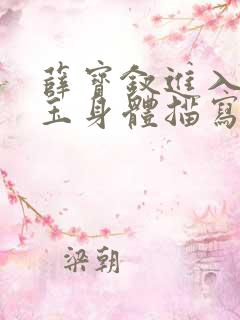 薛寶釵進入
玉身體描寫
梁朝